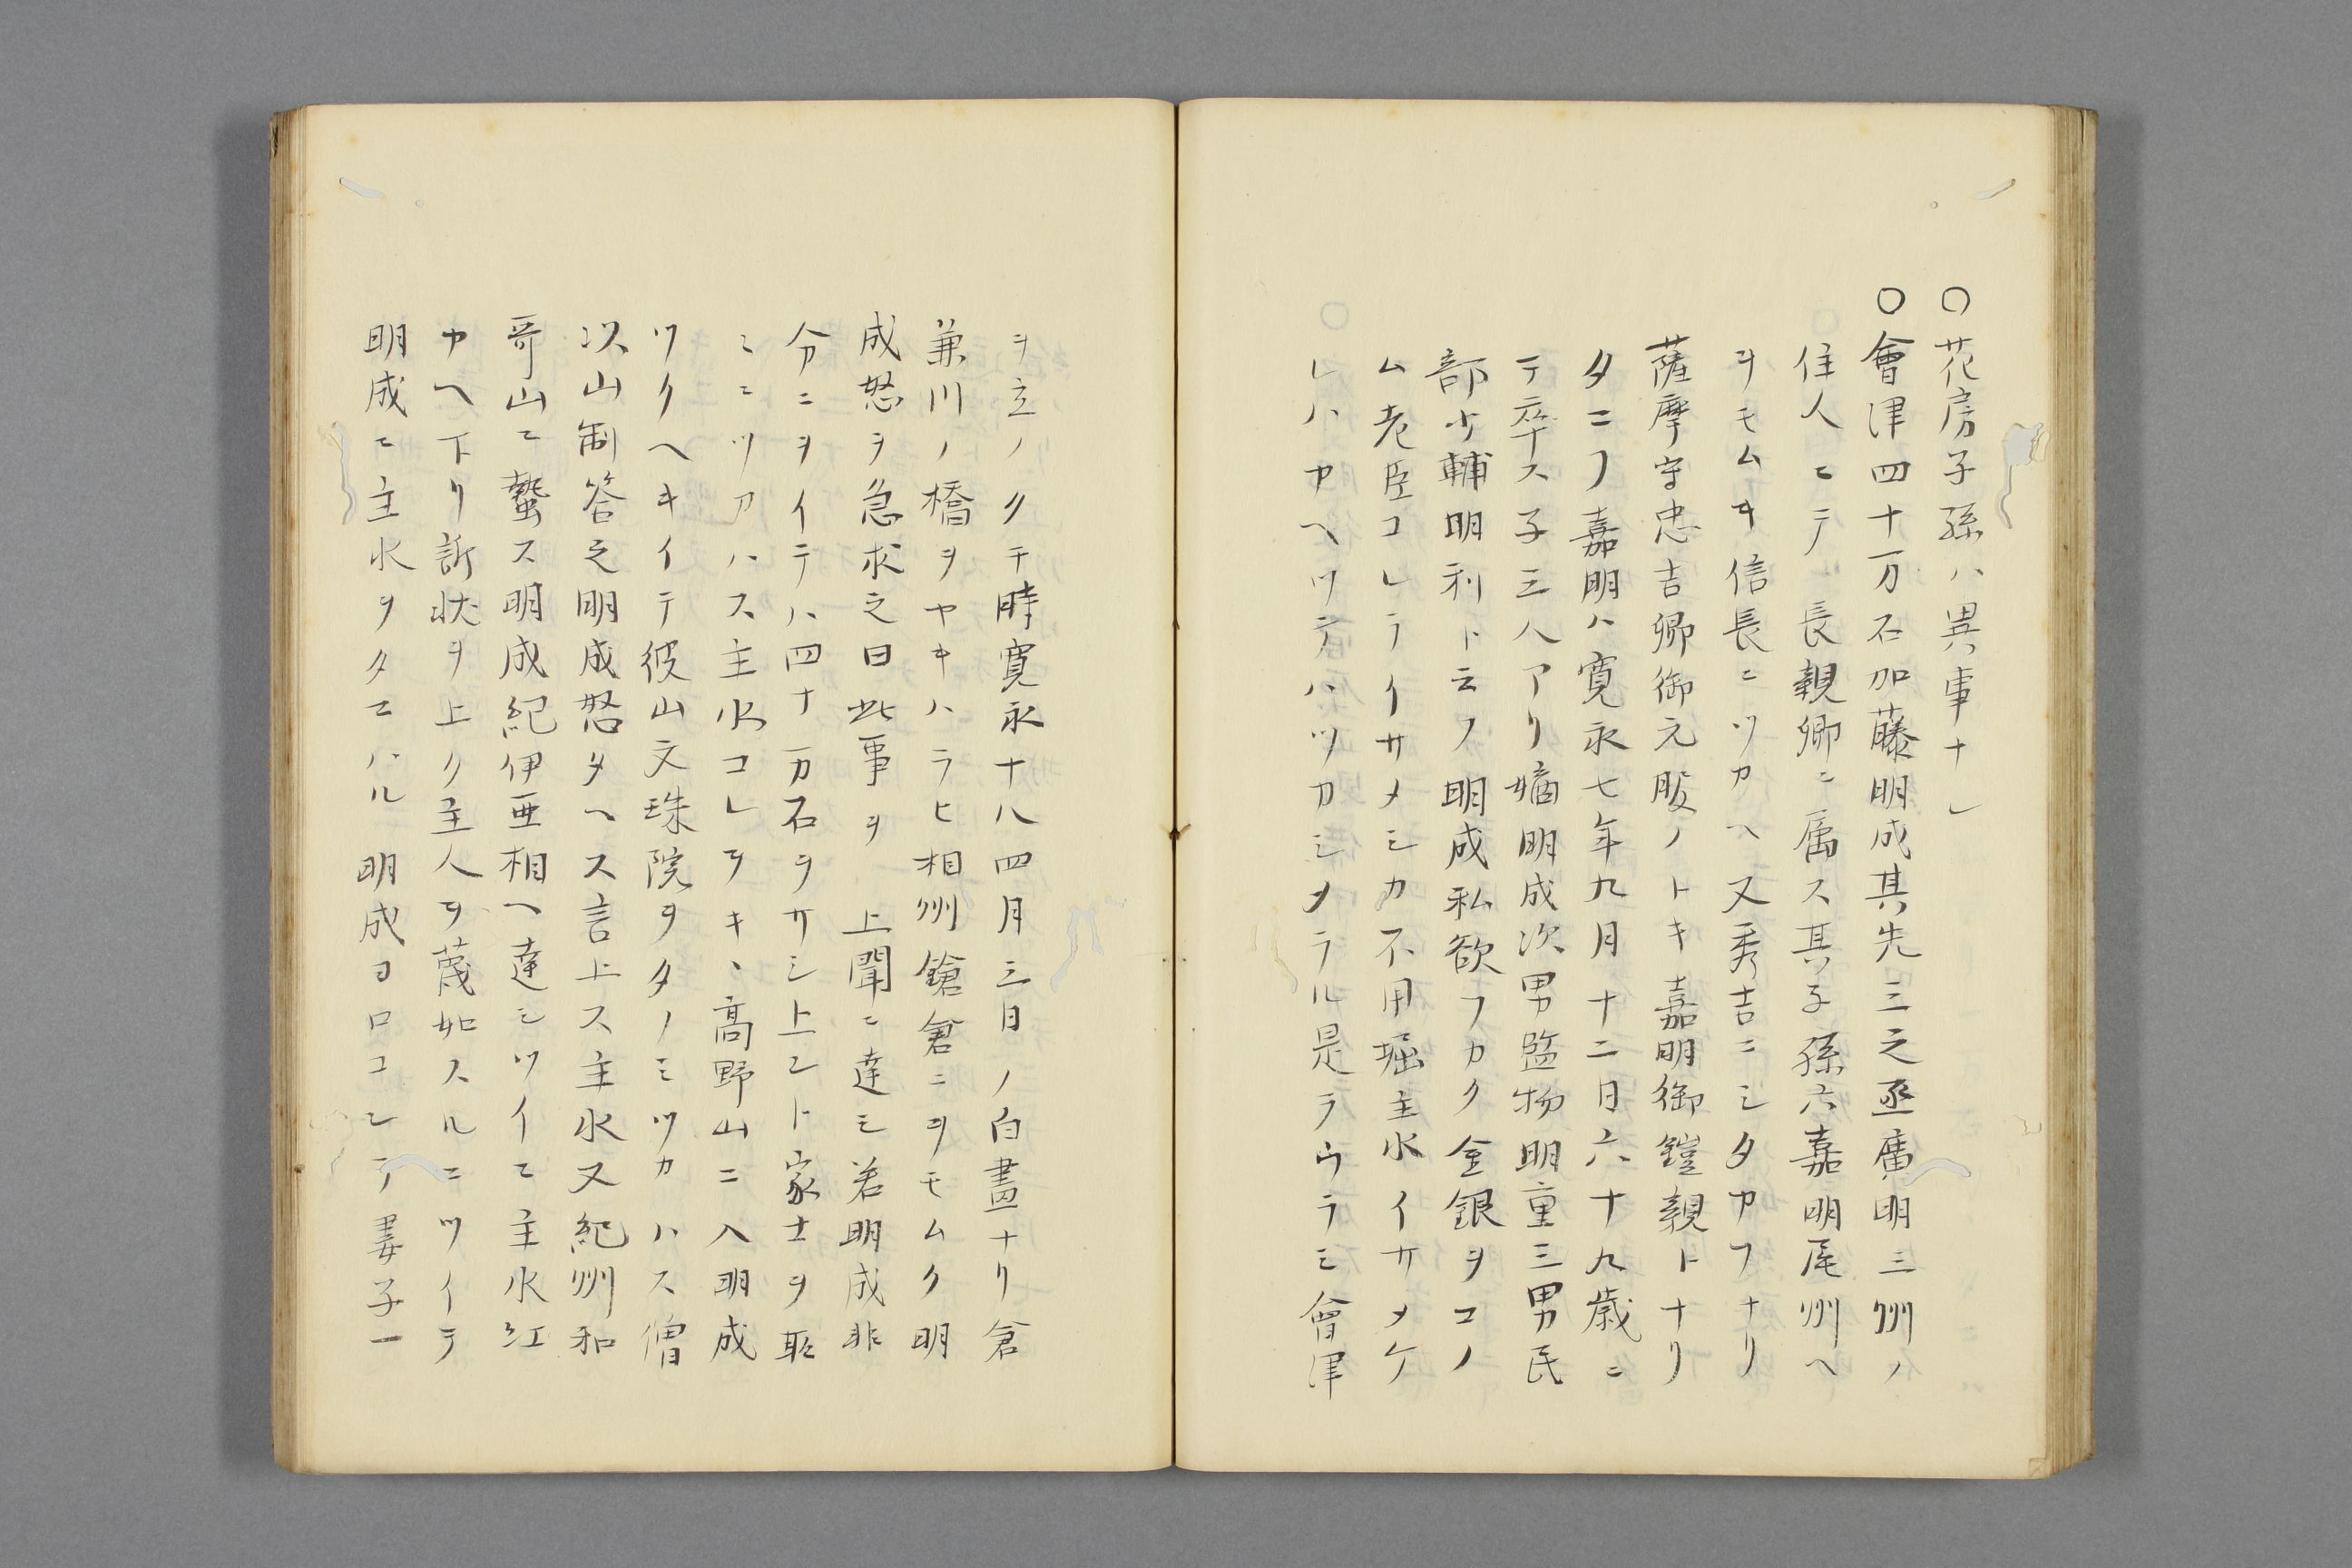 〇花房子孫ハ異事ナシ
〇會津四十万石加藤明成其先三之丞廣明三州ノ
住人ニテ長親卿ニ属ス其子孫六嘉明尾州ヘ
ヲモムキ信長ニツカヘ又秀吉ニシタカフナリ
薩摩守忠吉卿御元服ノトキ嘉明御鎧親トナリ
タニフ嘉明ハ寛永七年九月十二日六十九歳ニ
テ卒ス子三人アリ嫡明成次男監物明重三男民
部少輔明利ト云フ明成私欲フカク金銀ヲコノ
ム老臣コレライサメシカ不用堀主水イサメケ
レハカヘツテハツカシメラル是ラウラミ會津
ヲ立ノク于時寛永十八四月三日ノ白晝ナリ倉
兼川ノ橋ヲヤキハラヒ相州鎗倉ニヲモムク明
成怒ヲ急求之曰此事ヲ 上聞ニ達シ若明成非
分ニヲイテハ四十万石ヲサシ上ント家士ヲ取
ミニツカハス主水コレヲキヽ高野山ニ入明成
ツクヘキイテ彼山文珠院ヲタノミツカハス僧
次山制答之明成怒タヘス言上ス主水又紀州和
哥山ニ蟄ス明成紀伊亜相ヘ達シツイニ主水江
戸ヘ下リ訴状ヲ上ク主人ヲ蔑如スルニツイテ
明成ニ主水ヲタニハル明成ヨロコンテ妻子一